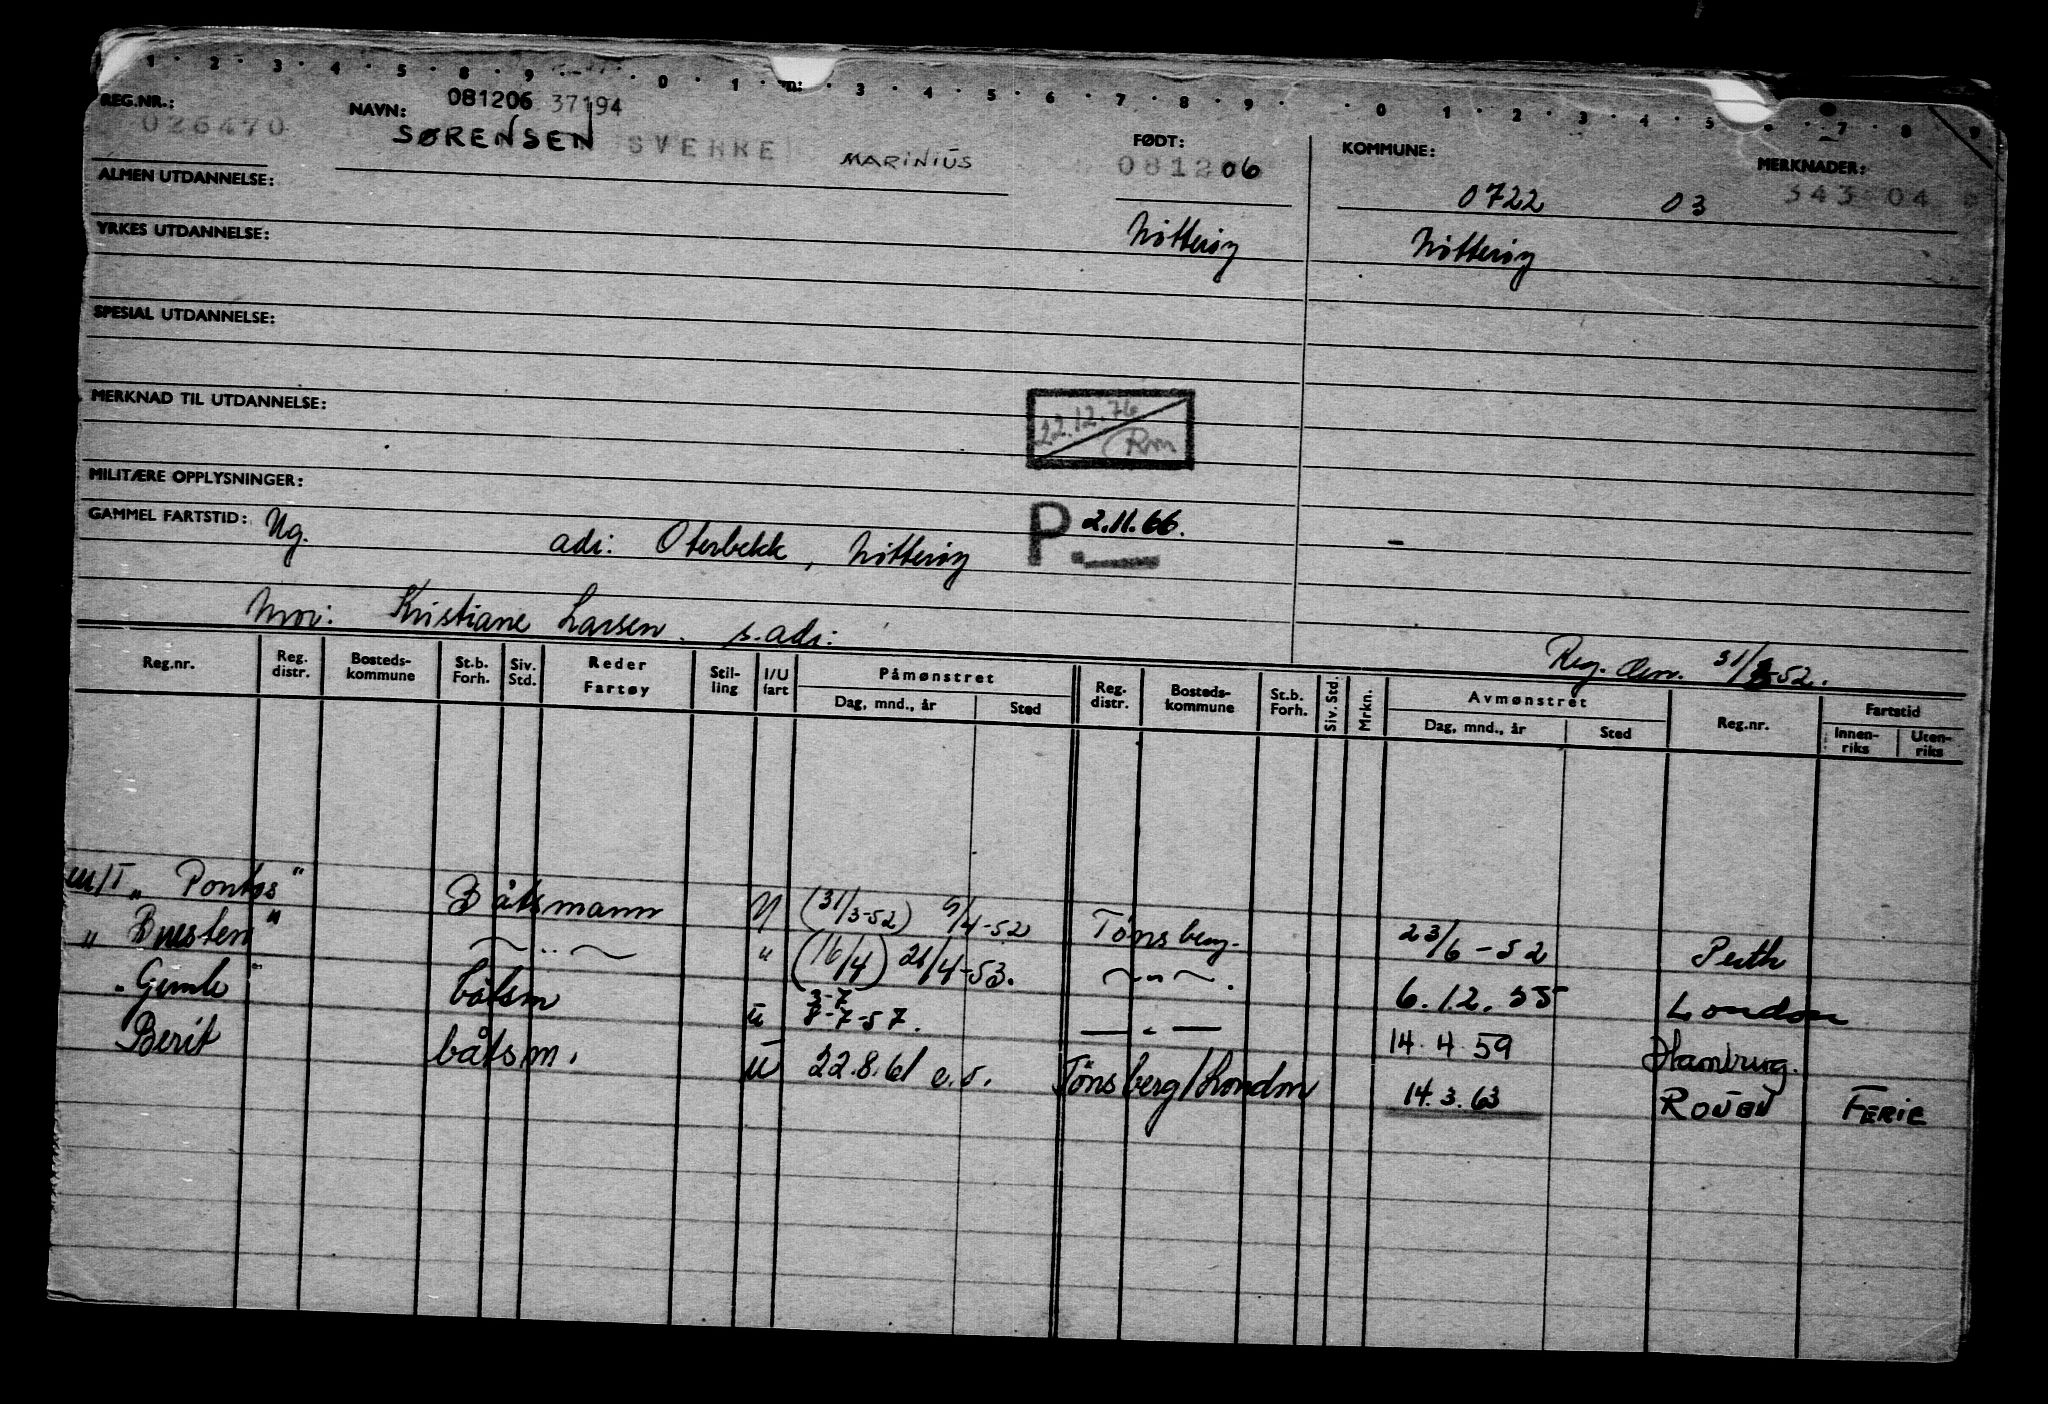 1 · 2 · 3 · 4 · 5 · 8 · 9 · 0 · 1 · m: · 3 · 4 · 5 · 6 · 7 · 8 · 9 · · 0 · 1 · 2 · 3 · 4 · 5 · 7 · 8 9
REG.NR.: 026470 NAVN: 081206 37194
SØRENSEN SVERRE MARINIUS FØDT: 081206 KOMMUNE: 0722 03 MERKNADER: 343 04
ALMEN UTDANNELSE:
YRKES UTDANNELSE: Nötteröy Nötteröy
SPESIAL UTDANNELSE:
MERKNAD TIL UTDANNELSE: 22.12.76 Rm
MILITÆRE OPPLYSNINGER:
GAMMEL FARTSTID: Ug. adr: Oterbekk, Nötteröy P. 2.11.66.
Mor: Kristiane Larsen. s. adr: Reg. den. 31/3-52.
Reg.nr. Reg. distr. Bosteds-kommune St.b. Forh. Siv. Std. Reder Fartøy Stil-ling I/U fart Påmønstret Dag, mnd., år Sted Reg. distr. Bosteds-kommune St.b. Forh. Siv. Std. Mrkn. Avmønstret Dag, mnd., år Sted Reg.nr. Fartstid Innen-riks Uten-riks
m/T „ Pontos " Båtsmann U (31/3-52) 9/4-52 Tönsberg. 23/6-52 Perth
„ Busten " " " (16/4) 21/4-53. " . 6.12.55 London
„ Gimle " båtsm u 3-7 8-7-57. — " — 14.4.59 Hambrug.
Berit båtsm. u 22.8.61 e.o. Tönsberg/London 14.3.63 ROUEN FERIE